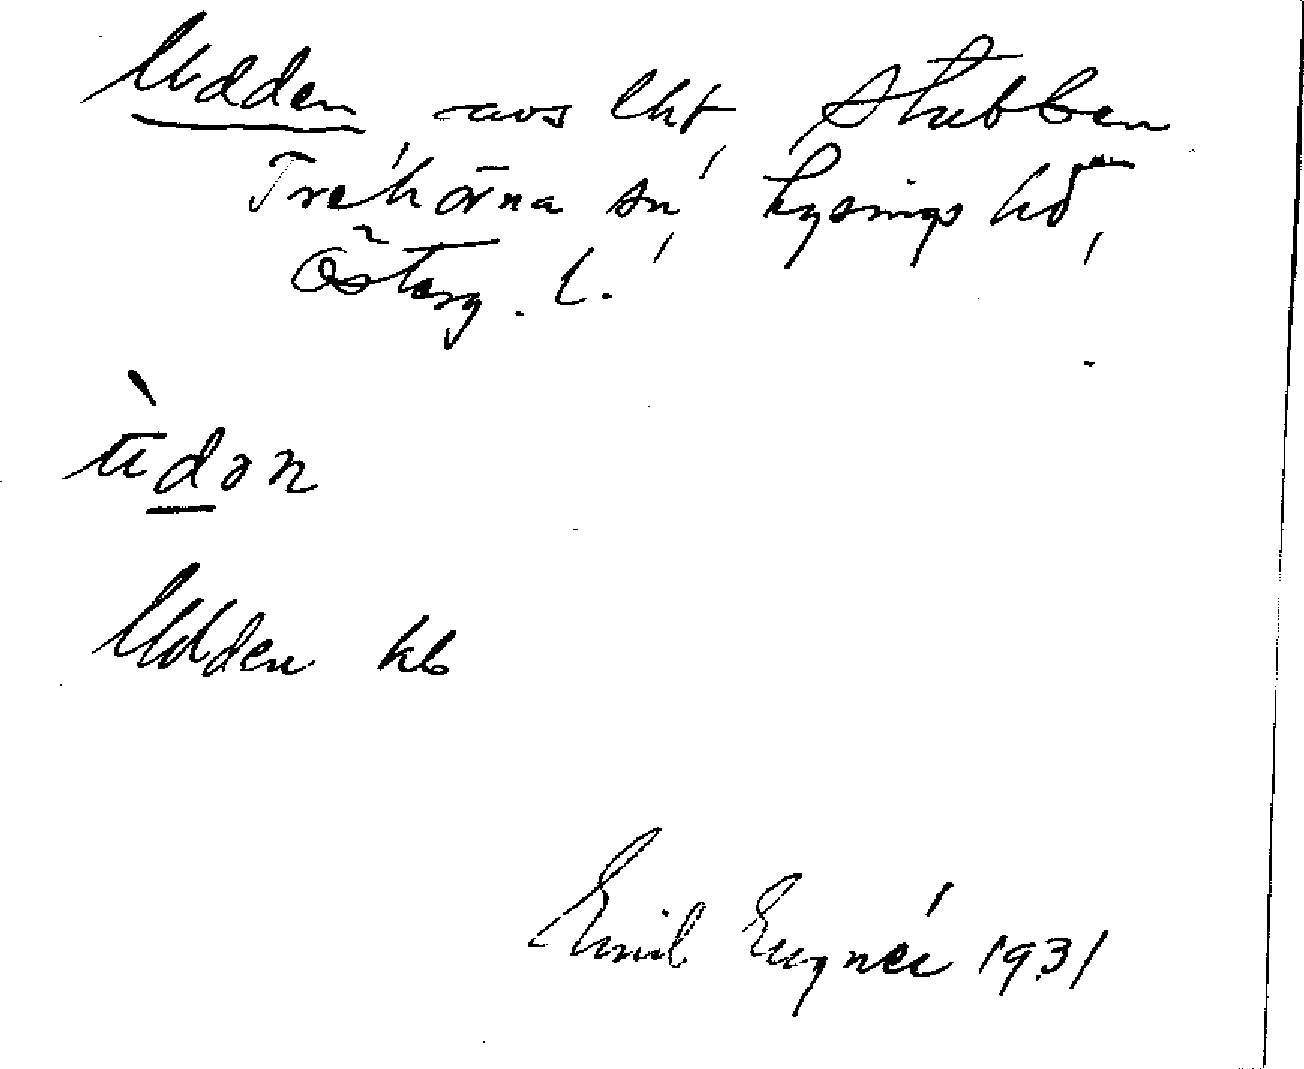 Udden avs lht, Stubben
Trehörna sn, Lysings hd,
Österg. l.
ùdən
Udden kb
Emil Lugnér 1931